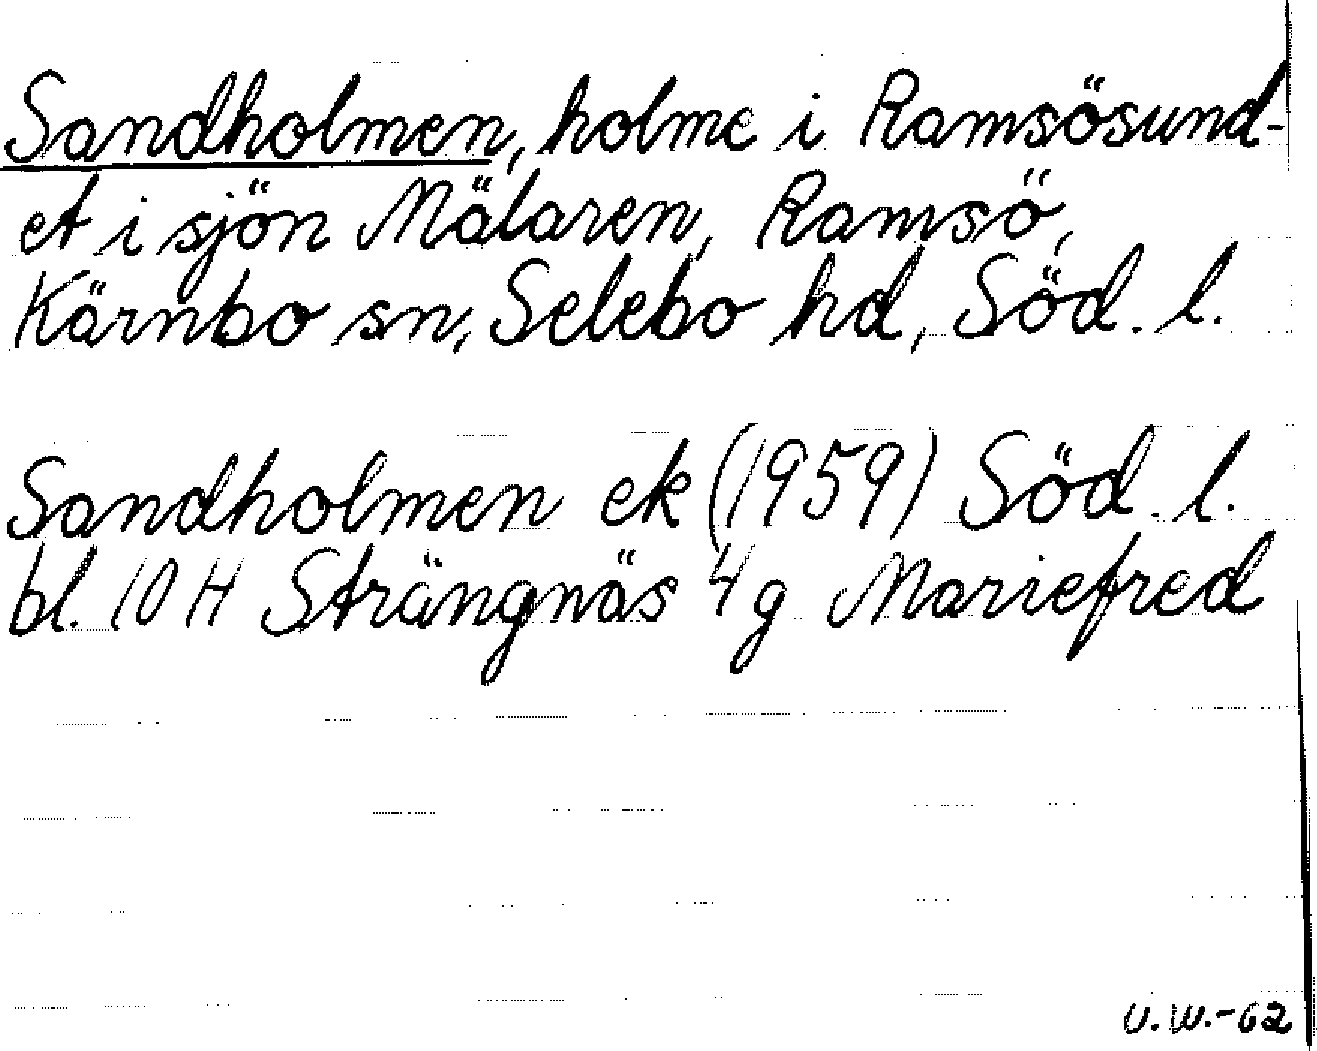 Sandholmen, holme i Ramsösund-
et i sjön Mälaren, Ramsö,
Kärnbo sn, Selebo hd, Söd. l.
Sandholmen ek (1959) Söd. l.
bl. 10 H Strängnäs 4 g Mariefred
U.W.-62